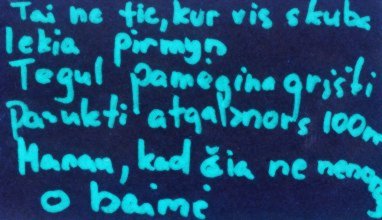 Tai ne tie, kur vis skuba
lekia pirmyn
Tegul pamegina grįžti
Pasukti atgal nors 100m
Manau, kad čia ne
O baimė